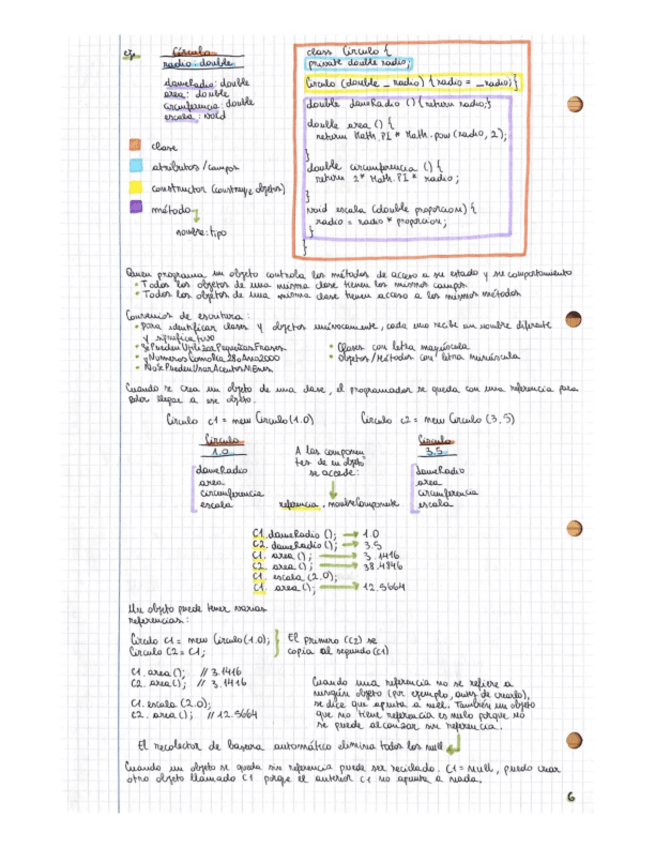 ej.
Círculo
radio: double
dameRadio: double
area: double
circunferencia: double
escala: void
clase
atributos/campos
constructor (construye objetos)
método
nombre: tipo
class Circulo {
private double radio;
Circulo (double _ radio) { radio = _radio; }
double dameRadio () { return radio; }
double area () {
return Math.PI * Math.pow (radio, 2);
}
double circumferencia () {
return 2* Math.PI * radio ;
}
void escala (double proporcion) {
radio = radio * proporcion;
}
}
programa, un objeto controla los métodos de acceso a su estado y su comportamiento
• Todos los objetos de una misma clase tienen los mismos campos
• Todos los objetos de una misma clase tienen acceso a los mismos métodos
Convenios de escritura:
• para identificar clases y objetos unívocamente, cada uno recibe un nombre diferente
y significativo
• SePuedenUtilizarPequeñasFrases
• yNumerosComoNia280Ano2000
• NoSePuedenUsarAcentosNiEnes
• Clases con letra mayúscula
• Objetos/Métodos con letra minúscula
Cuando se crea un objeto de una clase, el programador se queda con una referencia para
poder llegar a ese objeto.
Circulo c1 = new Circulo (1.0)
Circulo c2 = new Circulo (3.5)
Circulo
1.0
dameRadio
area
circumferencia
escala
A los componen
tes de un objeto
se accede:
referencia . nombreComponente
Circulo
3.5
dameRadio
area
circumferencia
escala
C1.dameRadio (); → 1.0
C2.dameRadio (); → 3.5
C1. area (); → 3.1416
C2. area (); → 38.4846
C1. escala (2.0);
C1. area (); → 12.5664
Un objeto puede tener varias
referencias:
Circulo C1 = new Circulo (1.0);
Circulo C2 = C1;
El primero (C2) se
copia al segundo (C1)
C1. area (); // 3.1416
C2. area (); // 3.1416
C1. escala (2.0);
C2. area (); // 12.5664
Cuando una referencia no se refiere a
ningún objeto (por ejemplo, antes de crearlo),
se dice que apunta a null. También un objeto
que no tiene referencia es nulo porque no
se puede alcanzar sin referencia.
El recolector de basura automático elimina todos los null
Cuando un objeto se queda sin referencia puede ser reciclado. C1 = null, puedo crear
otro objeto llamado C1 porque el anterior C1 no apunta a nada.
6